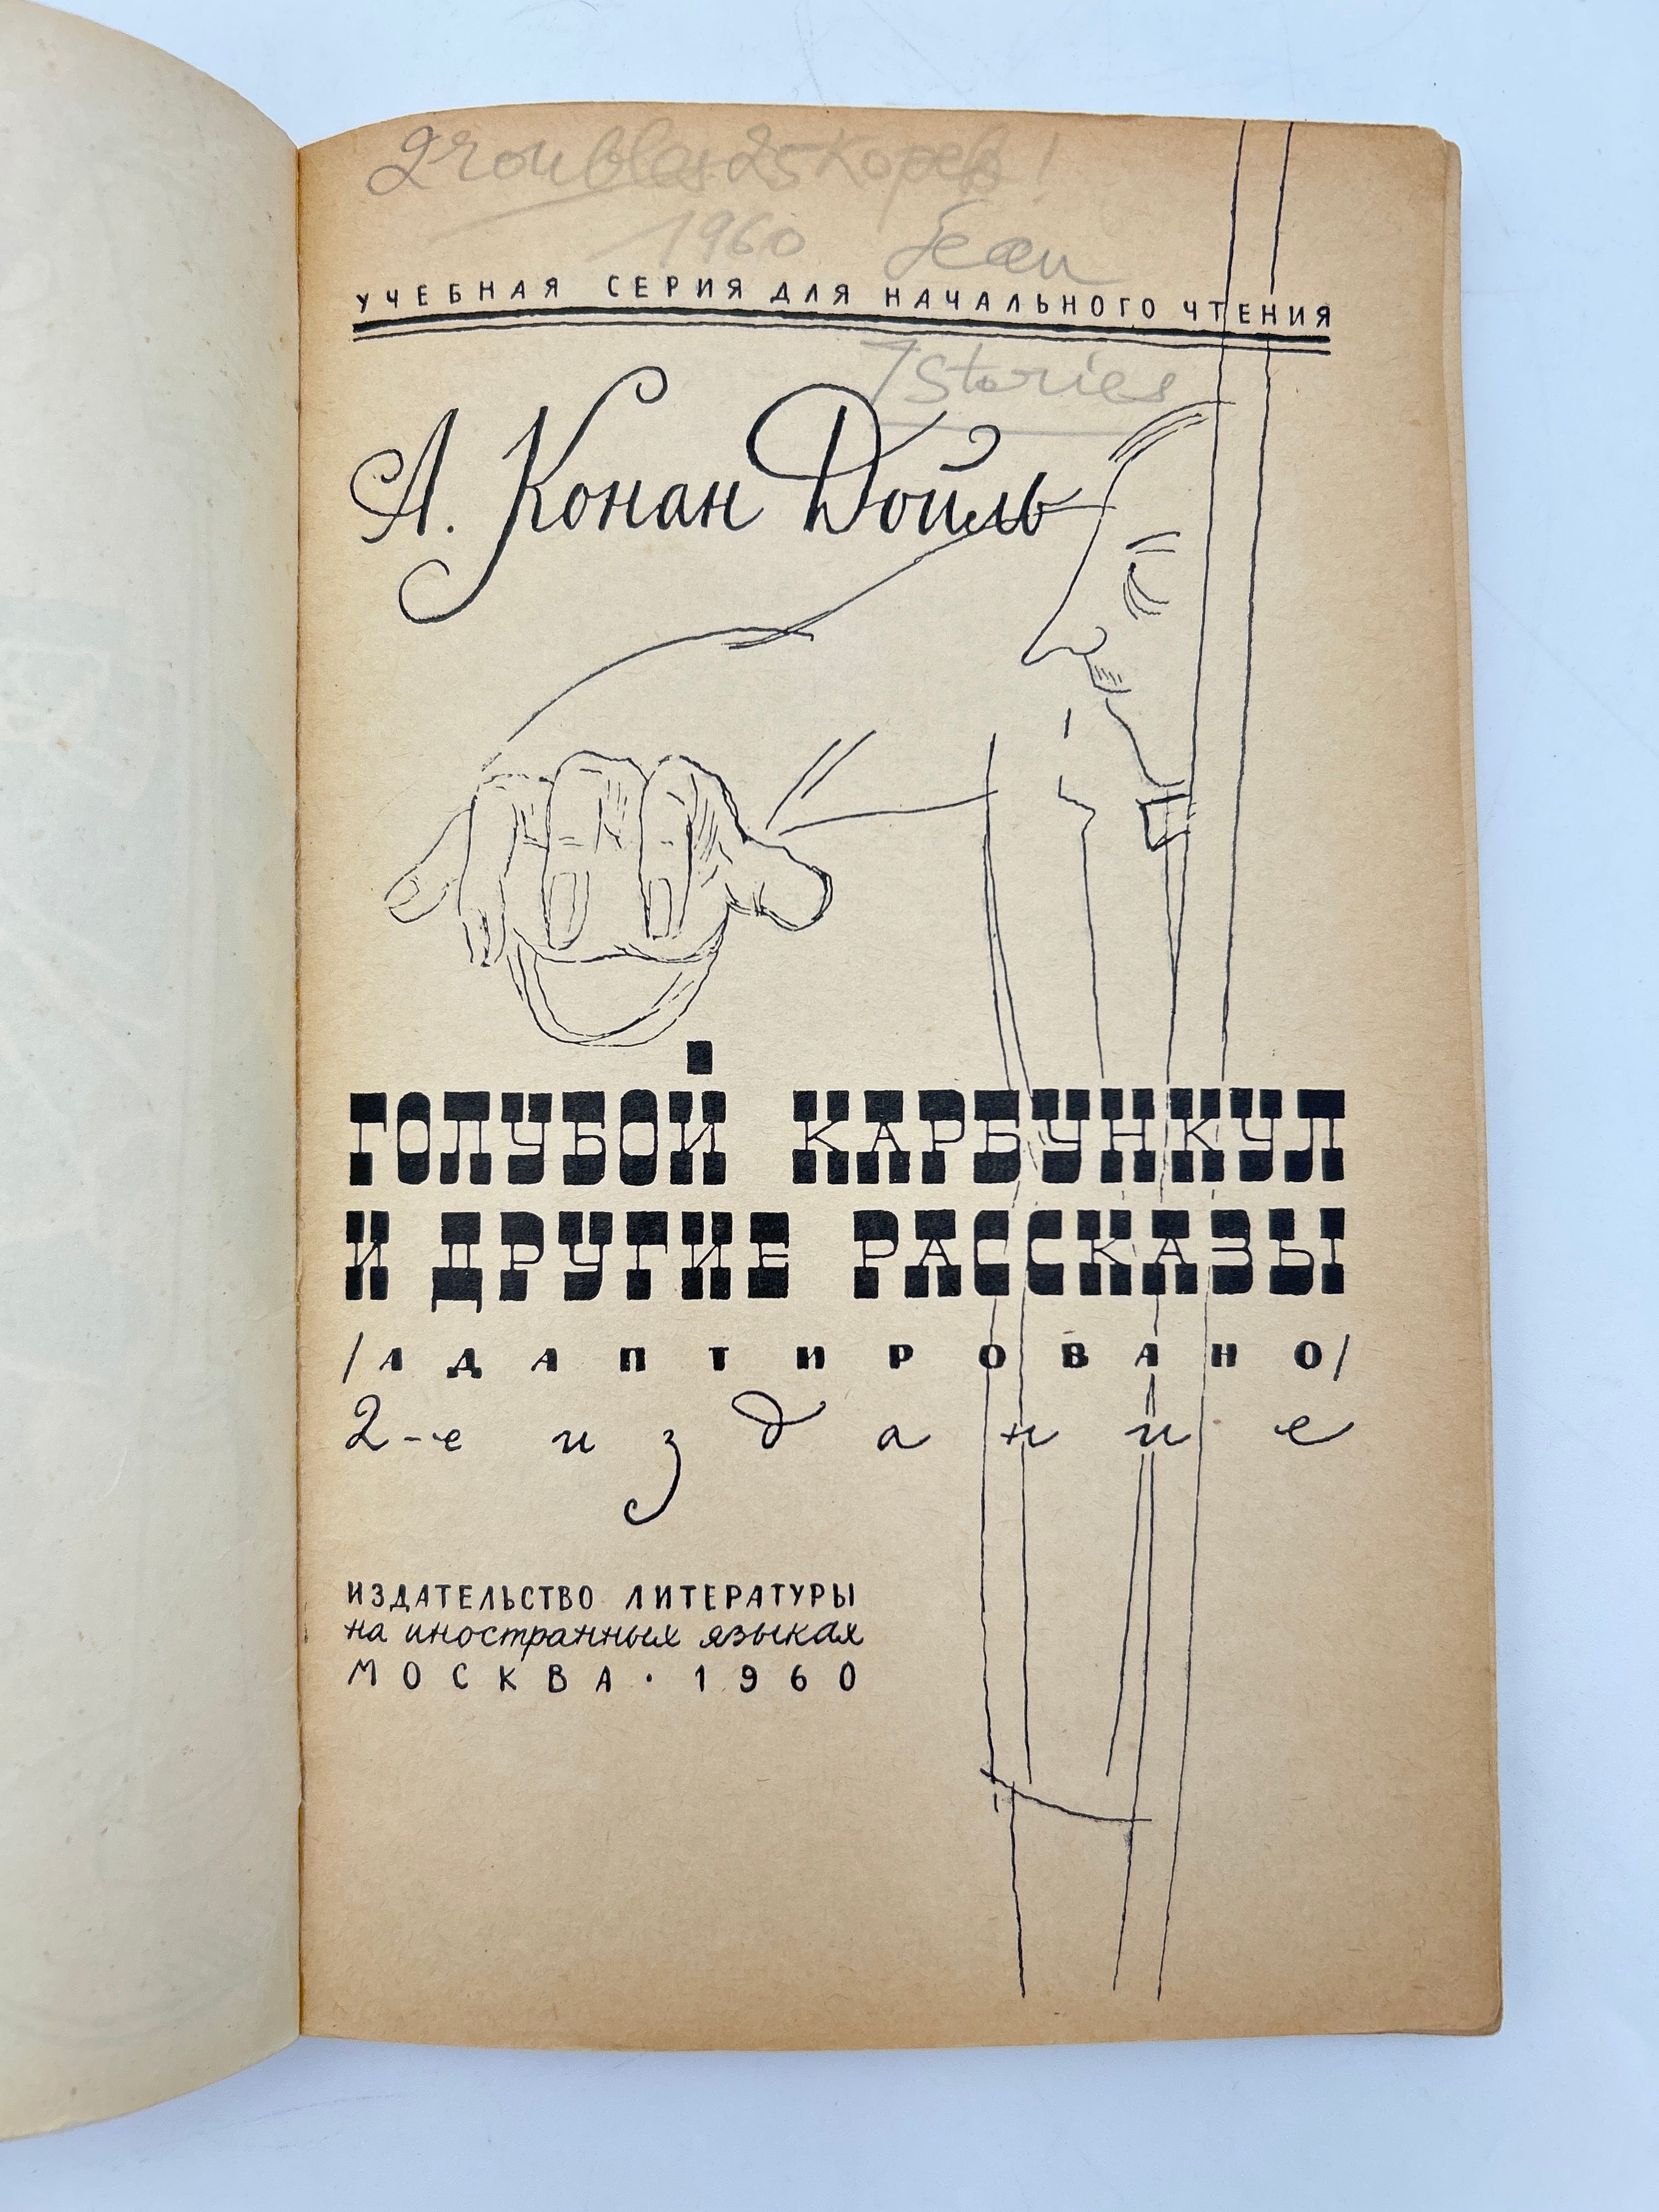 2 roubles 25 kopek!
1960 Jean
УЧЕБНАЯ СЕРИЯ ДЛЯ НАЧАЛЬНОГО ЧТЕНИЯ
7 Stories
А. Конан Дойль
ГОЛУБОЙ КАРБУНКУЛ
И ДРУГИЕ РАССКАЗЫ
/АДАПТИРОВАНО/
2-е издание
ИЗДАТЕЛЬСТВО ЛИТЕРАТУРЫ
на иностранных языках
МОСКВА · 1960